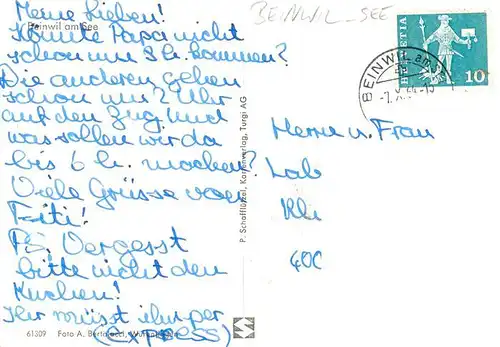 Meine Lieben!
Beinwil am See
Könnte Papa nicht
schon um 3 h. kommen?
Die anderen gehen
schon um 2 Uhr
auf den Zug und
was sollen wir da
bis 6 h. machen?
Viele Grüsse von
Fiti!
PS. Vergesst
bitte nicht den
Kuchen!
Ihr müsst ihn per
(EXPRESS)
61309 Foto A.
P. Schafflützel, Kartenverlag, Turgi AG
BEINWIL - SEE
BEINWIL am
HELVETIA
10
Herrn u. Frau
Lab
Kli
400